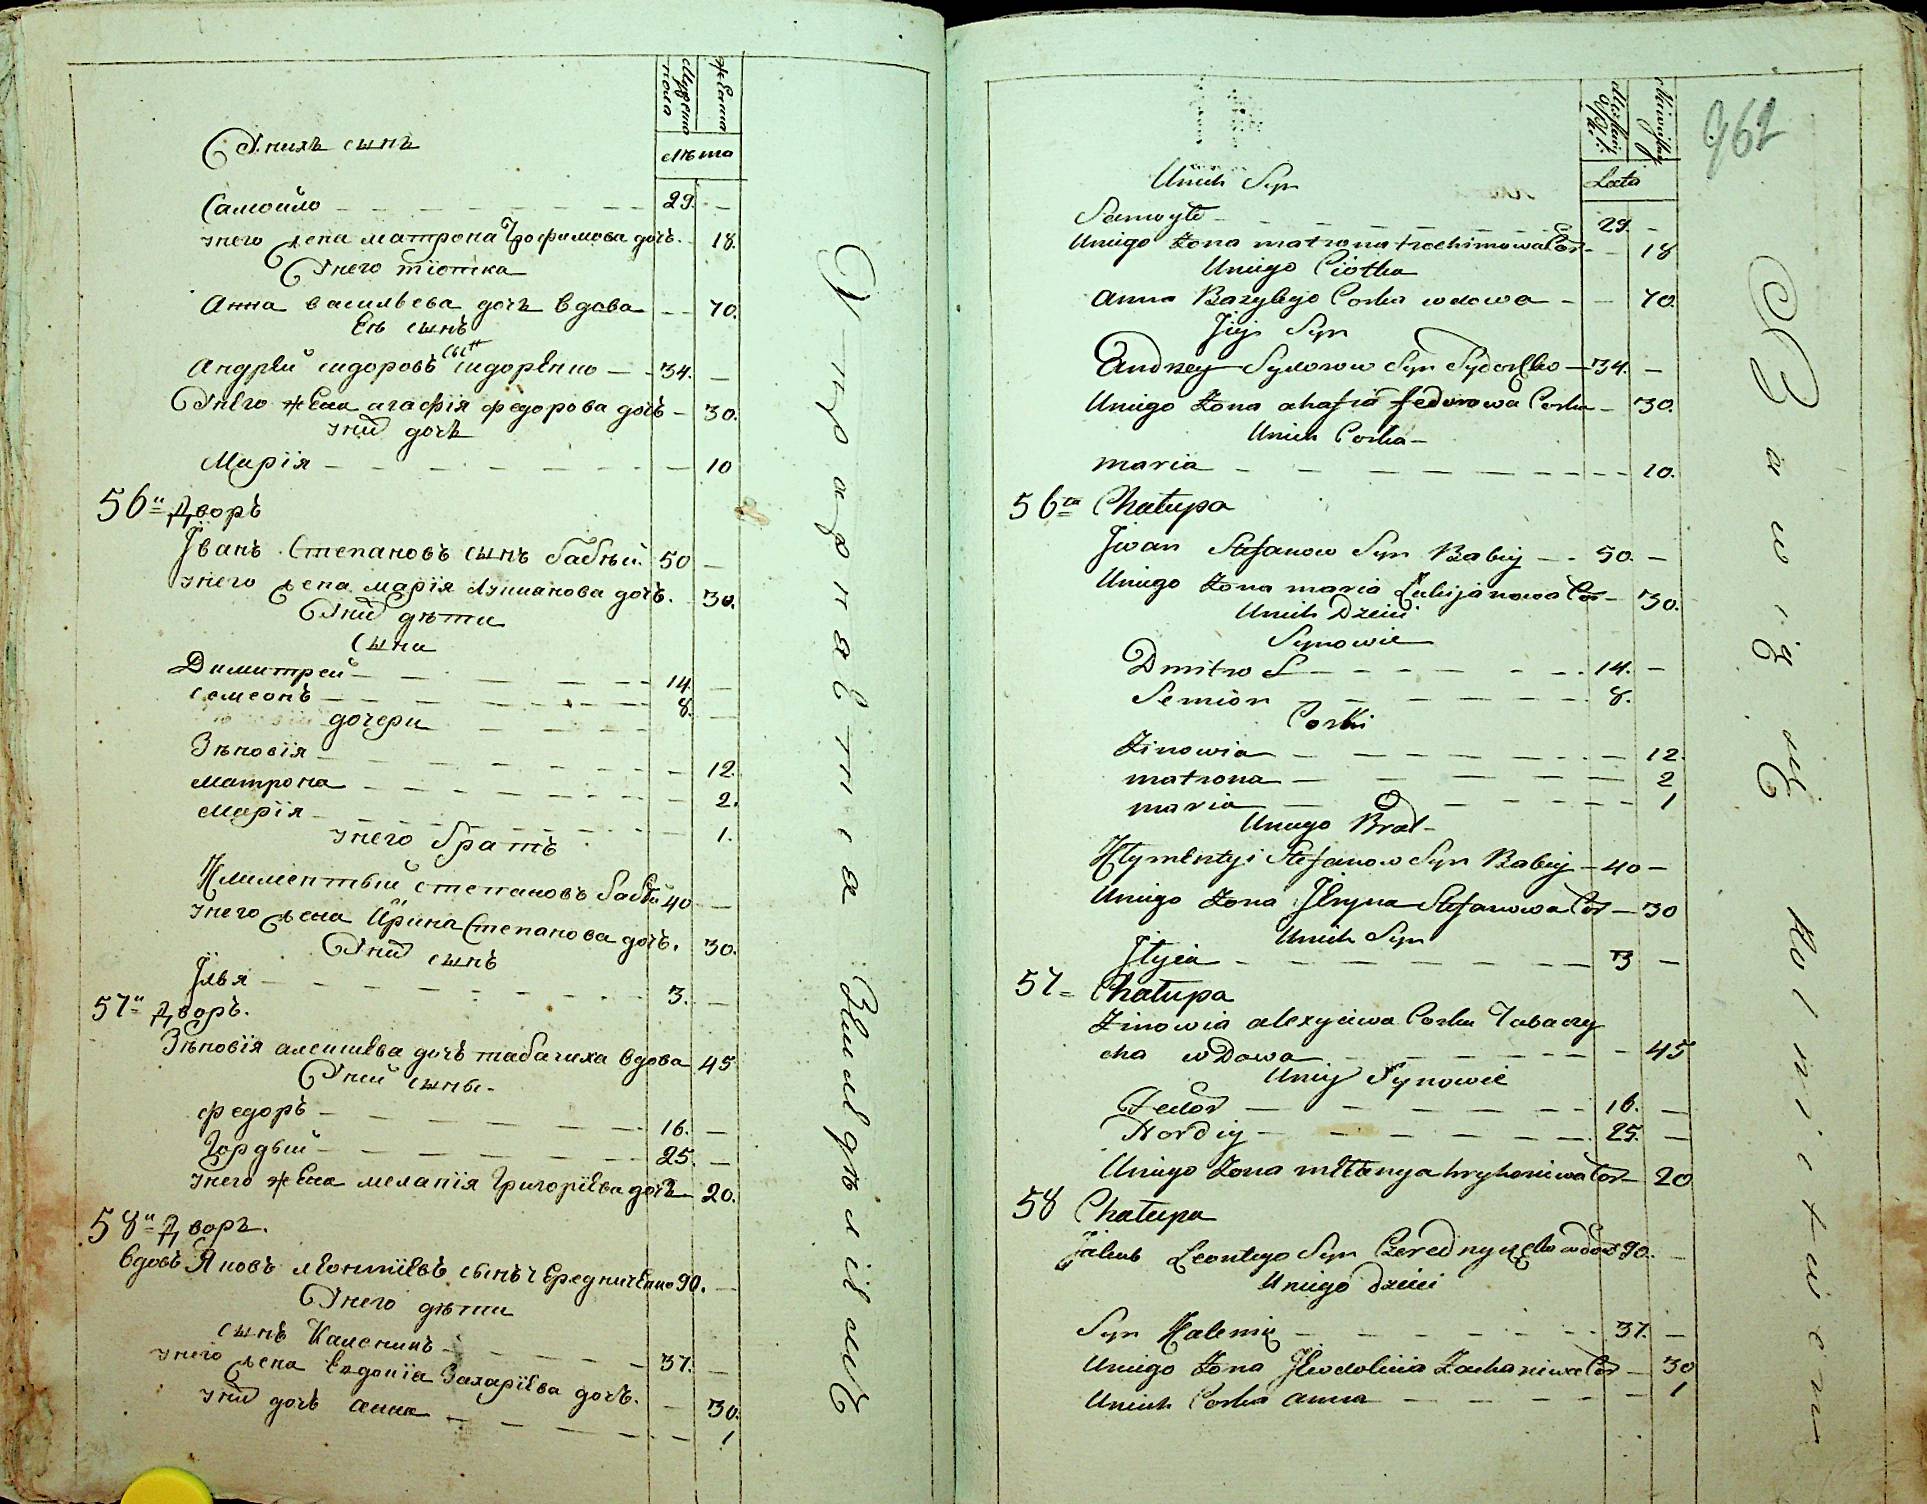 Мужеска пола
Женска
лѣта
У нихъ сынъ
Самойло — 29. —
у него жена матрона Трофимова дочь. 18.
У него тїотка
Анна васильева дочь вдова — 70.
Еѣ сынъ
Андрей сидоровъ сын сидоренко — 34. —
У него жена агафїя федорова дочь — 30.
у них дочь
Марїя — 10
56й Дворъ
Їванъ Степановъ сынъ бабѣй. 50 —
у него жена марїя Лукианова дочь. 30.
У них дѣти
сыни
Димитрей — 14. —
семеонъ — 8. —
дочери
Зѣновїя — 12.
матрона — 2.
марїя — 1.
у него братъ
Климентый степановъ бабѣй 40 —
у него жена Їрина Степанова дочь. 30.
У них сынъ
Їлья — 3. —
57й Дворъ.
Зѣновїя алексиева дочь табачиха вдова 45
У ней сыны.
федоръ — 16. —
Гордѣй — 25. —
у него жена меланїя Григорїева дочь — 20.
58й Дворъ.
вдовъ Яковъ леонтїевъ сынъ чередниченко 90. —
У него дѣти
сынъ Каленикъ — 37. —
у него жена Евдокїа Захарїева дочь. — 30.
у них дочь анна — 1
962
Lata
Unich Syn
Samoyło — 29 —
Uniego Żona matrona trochimowa Cor — 18
Uniego Ciotka
anna Bazylego Corka wdowa — 70.
Jiey Syn
Andrzey Sydorow Syn Sydoręko — 34. —
Uniego Żona ahafia fedorowa Corka — 30.
Unich Corka —
maria — 10.
56ta Chałupa
Jwan Stefanow Syn Babiy — 50. —
Uniego Żona maria Łukijanowa Cor — 30.
Unich Dzieci
Synowie
Dmitro S — 14. —
Semion — 8.
Corki
Zinowia — 12.
matrona — 2
maria — 1
Uniego Brat —
Kłymentyi Stefanow Syn Babiy — 40 —
Uniego Żona Jłryna Stefanowa Cor — 30
Unich Syn
Jłyia — 3 —
57 — Chałupa
Zinowia alexyiewa Corka Tabaczy
cha wDowa — 45
Uniey Synowie
Fedor — 16. —
Hordiy — 25. —
Uniego Żona mełanya hryhoriewa Cor — 20
58 Chałupa
Jakub Leontego Syn Czerednyczęko wdow 90. —
Uniego dzieci
Syn Kalenik — 37. —
Uniego Żona Jewdokiia Zachariewa Cor — 30
Unich Corka anna — 1